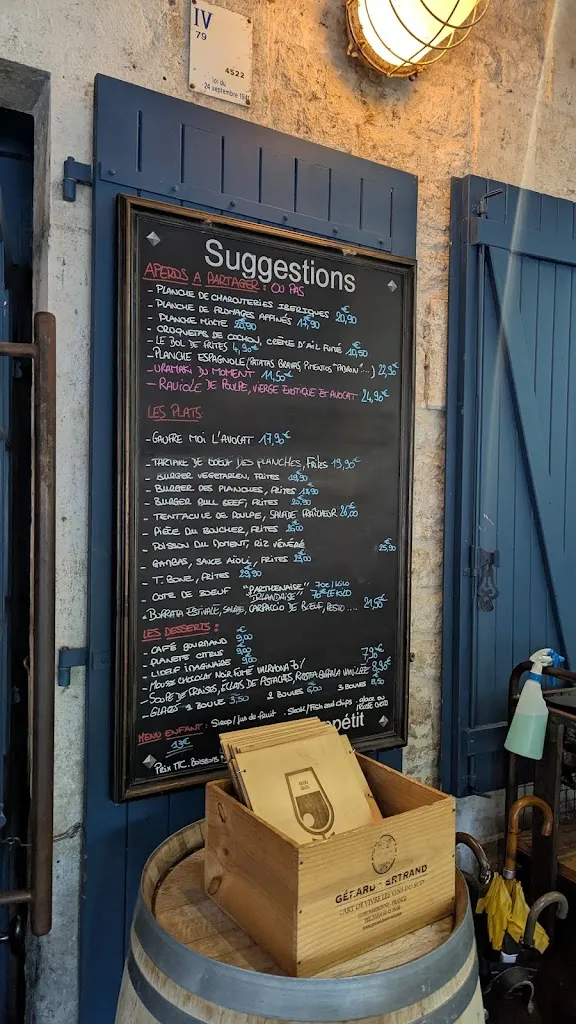 IV
79
4522
loi du
24 septembre 1941
Suggestions
APEROS A PARTAGER : OU PAS
- PLANCHE DE CHARCUTERIES IBERIQUES 20,90€
- PLANCHE DE FROMAGES AFFINÉS 17,90€
- PLANCHE MIXTE 20,90
- CROQUETAS DE COCHON, CRÈME D'AIL FUMÉ 10,50€
- LE BOL DE FRITES 4,90€
- PLANCHE ESPAGNOLE (PATATAS BRAVAS, PIMENTOS "PADRON"....) 22,90€
- URAMAKI DU MOMENT 11,50€
- RAVIOLE DE POULPE, VIERGE EXOTIQUE ET AVOCAT 24,90€
LES PLATS
- GAUFRE MOI L'AVOCAT 17,90€
- TARTARE DE BOEUF DES PLANCHES, Frites 19,90€
- BURGER VEGETARIEN, FRITES
- BURGER DES PLANCHES, FRITES
- BURGER PULL BEEF, FRITES 20,90
- TENTACULE DE POULPE, SALADE FRAÎCHEUR 26,00
- PIÈCE DU BOUCHER, FRITES
- POISSON DU MOMENT, RIZ VÉNÉRÉ 25,90
- GAMBAS, SAUCE AÏOLI, FRITES
- T. BONE, FRITES 29,90
- COTE DE BOEUF "PARTHENAISE" 70€/KILO
"IRLANDAISE" 70€ LE KILO
- BURRATA ESTIVALE, SALADE, CARPACCIO DE BŒUF, PESTO.... 21,50€
LES DESSERTS :
- CAFÉ GOURMAND 9,00
- PLANETE CITRUS 9,00
- L'OEUF IMAGINAIRE 9,00
- MOUSSE CHOCOLAT NOIR FUMÉ VALRHONA 70% 7,90€
- SOUPE DE FRAISES, ÉCLATS DE PISTACHES, VANILLÉE 8,90€
- GLACES 1 BOULE 3,50 2 BOULES 6,00 3 BOULES 8,50
MENU ENFANT : Sirop / jus de fruit . Steak / Fish and chips . glace ou
13€
pétit
PRIX TTC. BOISSONS
GÉRARD BERTRAND
L'ART DE VIVRE LES VINS DU SUD
NARBONNE - FRANCE